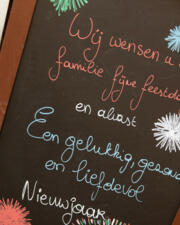 Wij wensen u
familie fijne feestda
en alvast
Een gelukkig gezon
en liefdevol
Nieuwjaar